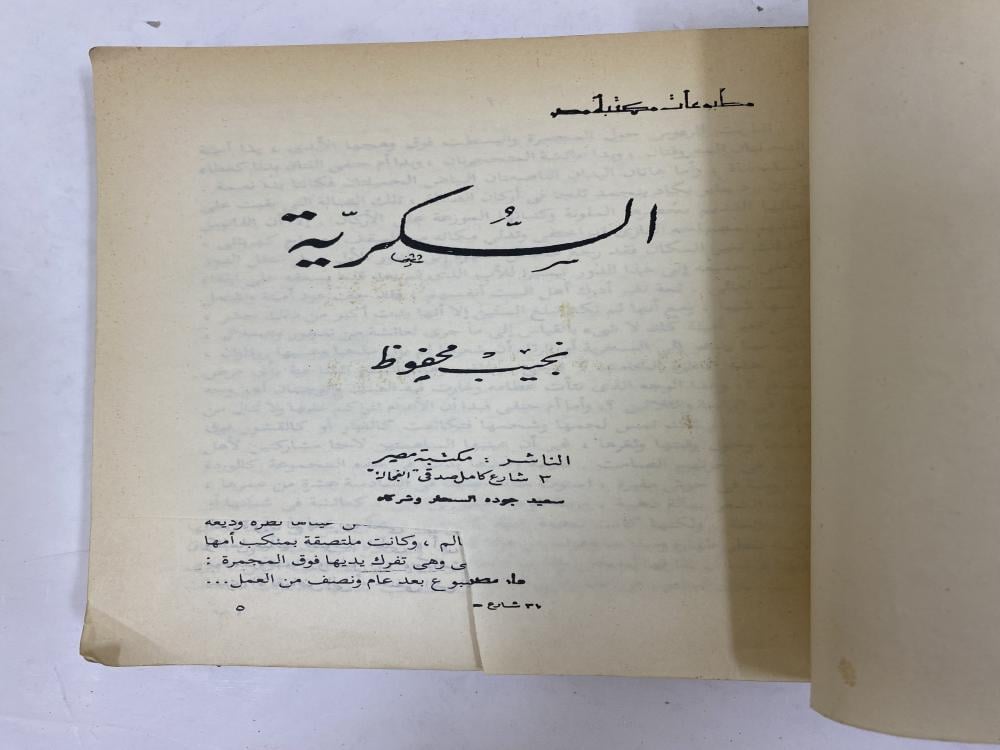 مطبوعات مكتبة مصر
السكريّة
نجيب محفوظ
الناشر : مكتبة مصر
٣ شارع كامل صدقى "الفجالة"
سعيد جوده السحار وشركاه
نظرة وديعة
الم ، وكانت ملتصقة بمنكب أمها
ى وهى تفرك يديها فوق المجمرة :
بوع بعد عام ونصف من العمل ...
شارع
٥